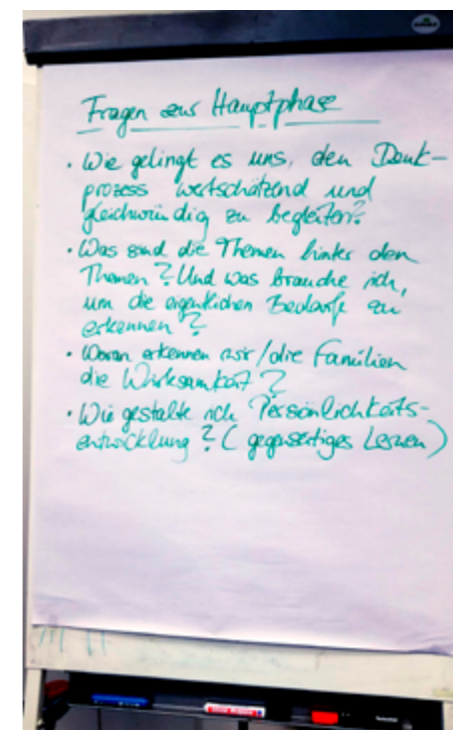 Fragen zur Hauptphase
• Wie gelingt es uns, den Denk-
prozess wertschätzend und
gleichwürdig zu begleiten?
• Was sind die Themen hinter den
Themen? Und was brauche ich,
um die eigentlichen Bedarfe zu
erkennen?
• Woran erkennen wir/die Familien
die Wirksamkeit?
• Wie gestalte ich Persönlichkeits-
entwicklung? (gegenseitiges Lernen)